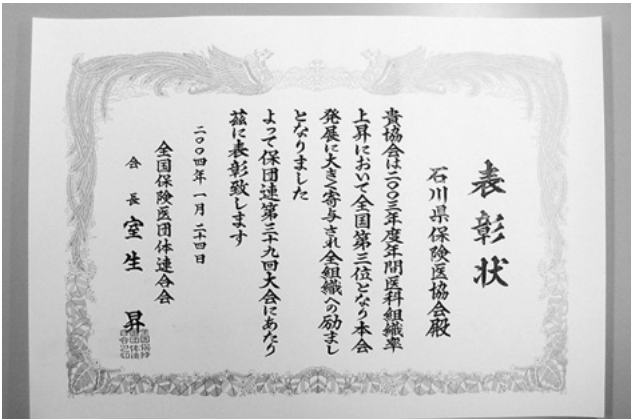 表彰状
石川県保険医協会殿
貴協会は二〇〇三年度年間医科組織率
上昇において全国第三位となり本会
発展に大きく寄与され全組織への励まし
となりました
よって保団連第三十九回大会にあたり
茲に表彰致します
二〇〇四年一月二十四日
全国保険医団体連合会
会長 室生 昇